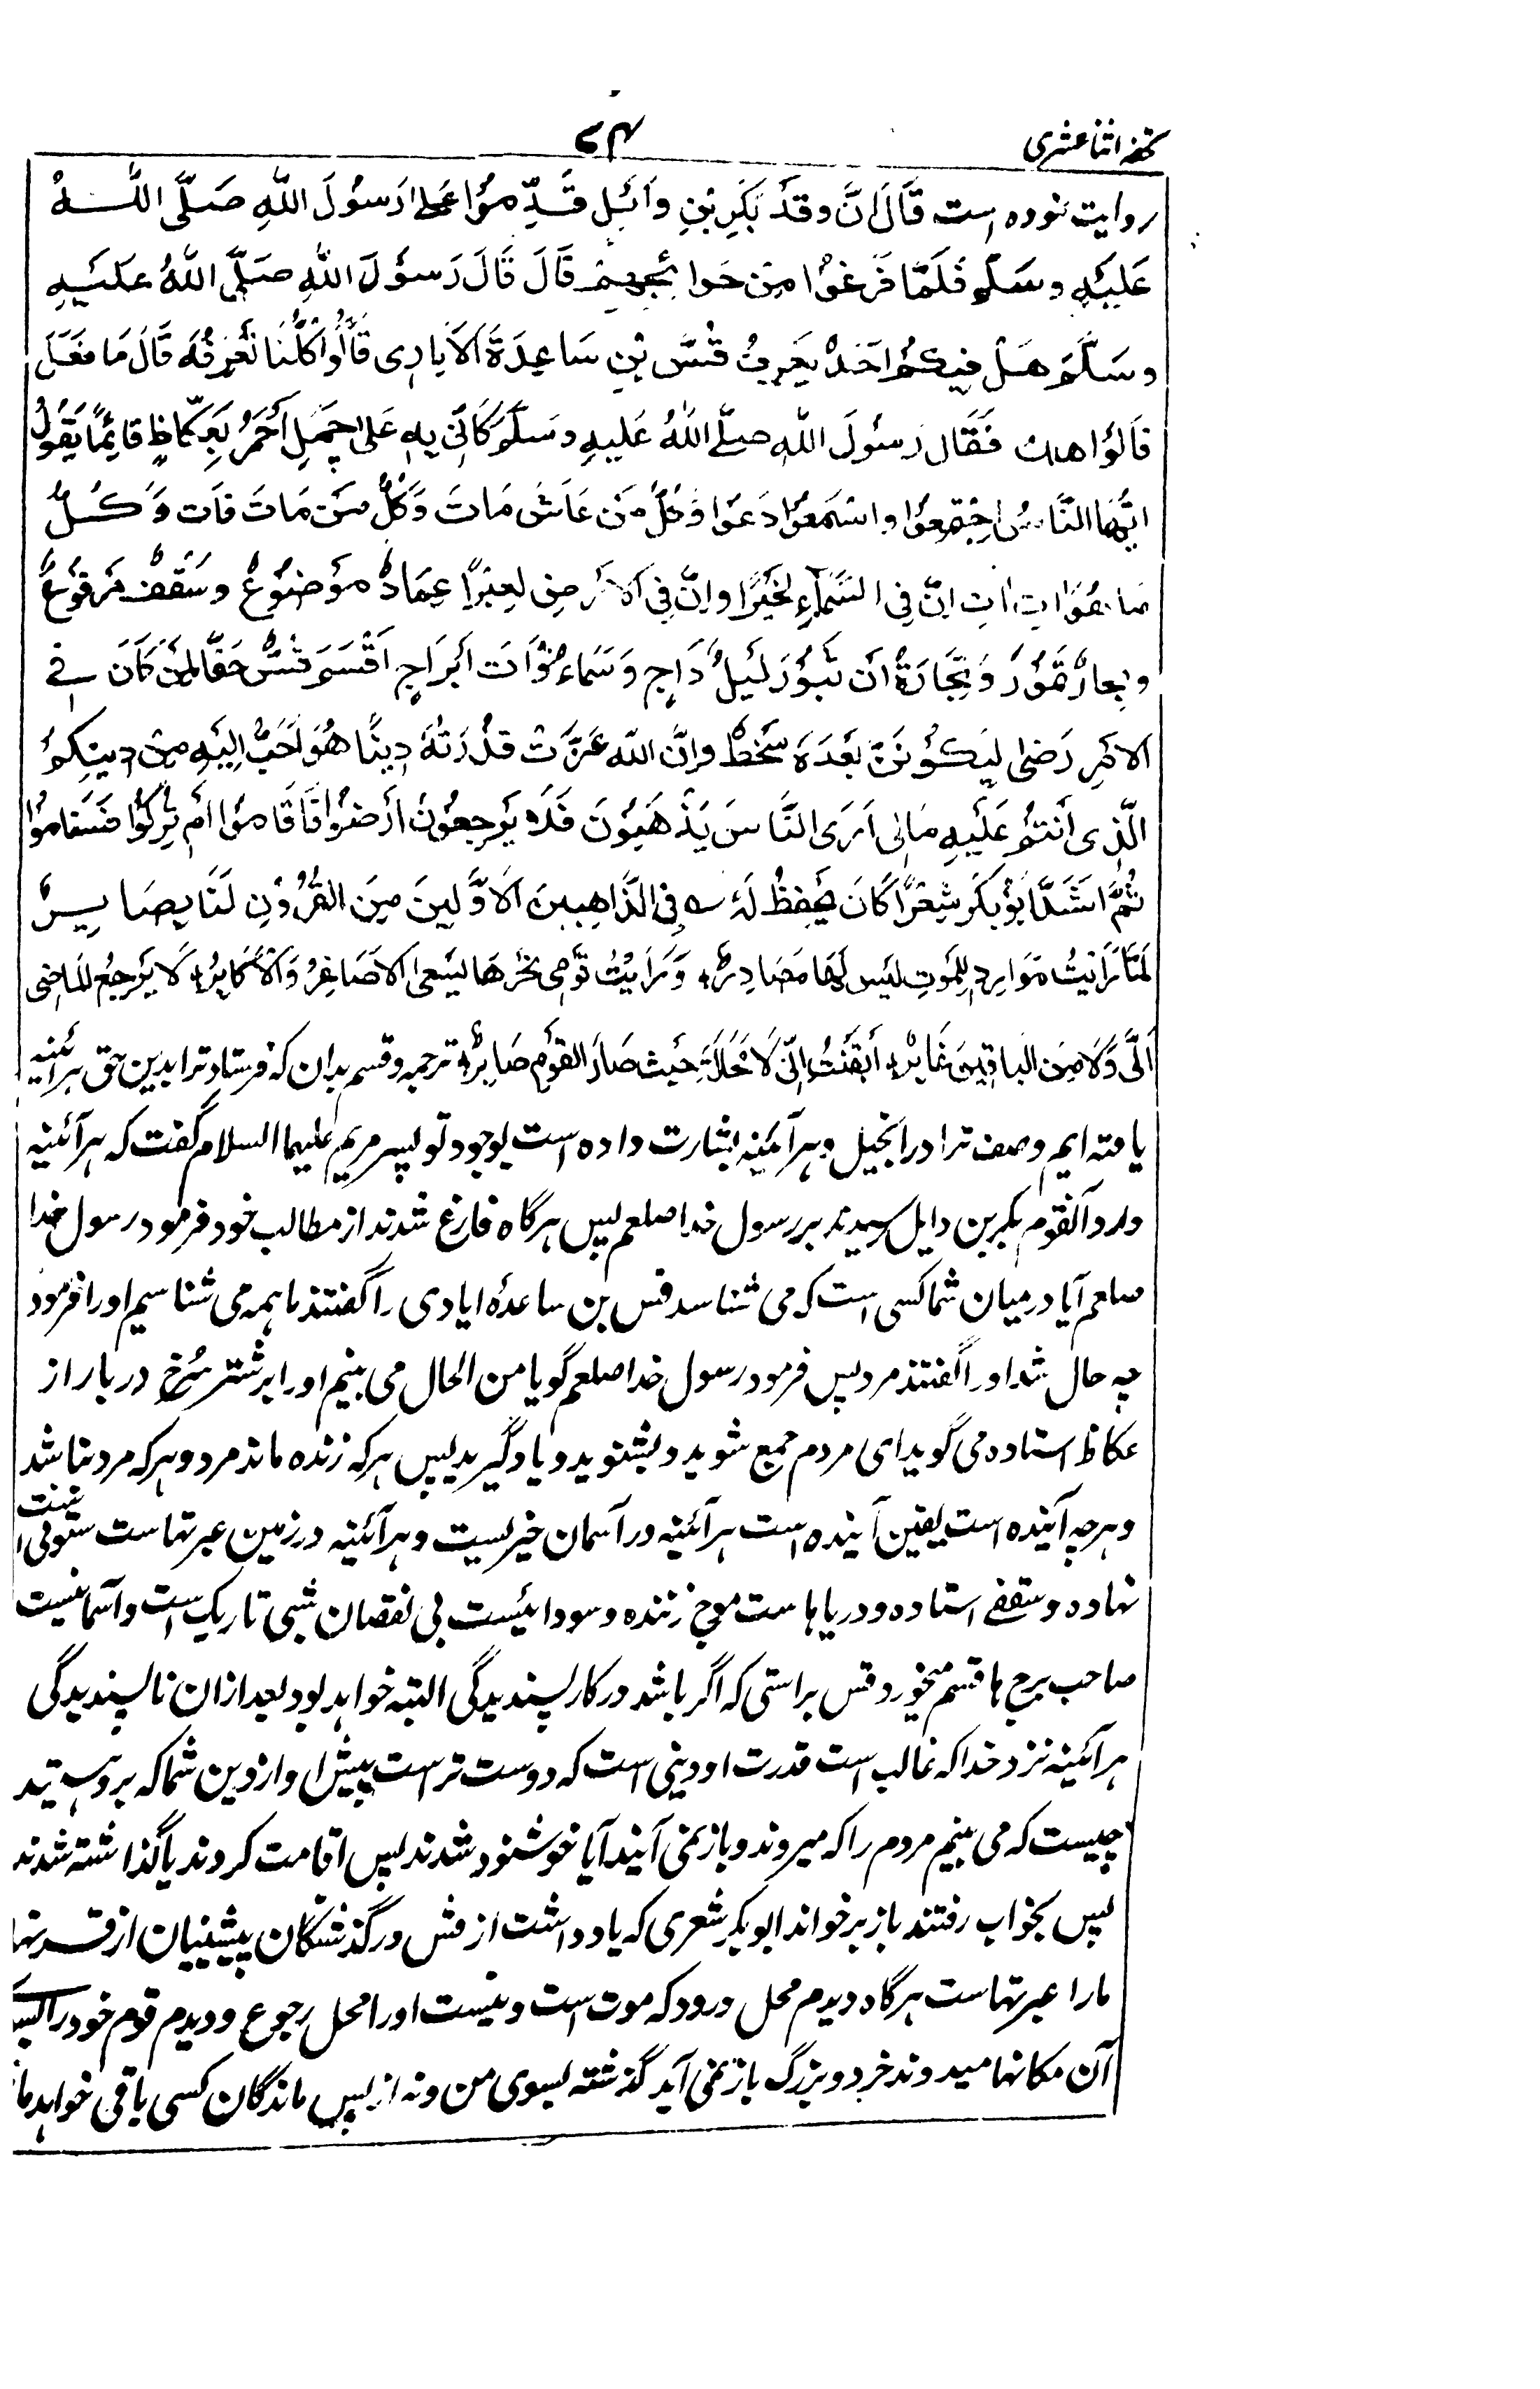 تحفه اثنا عشری
۷۴
روایت نموده است قَالَ اِنَّ وفَدَ بَکَرِ بْنِ وَائِل قَدِّمُوْا عَلَی رَسُوْلَ اللّٰهِ صَلَّی اللّٰــهُ
عَلَیْهِ وسَلَّم فَلَمَّا فَرَغُوْا مِنْ حَوائِجِهِمْ قَالَ قَالَ رَسوُلَ اللهِ صَلَّی اللهُ عَلَیْهِ
وسَلَّمَ هَلْ فِیکُمْ اَحَدٌ یَعرِفُ قُسَّ بْنِ سَاعِدَةَ الاَیادِی قَالُوْا کُلُّنَا نَعْرِفُهُ قَالَ مَا فَعَلَ
قالُوْا هلك فَقَالَ رَسوُلَ اللهِ صلَّی اللهُ عَلیهِ وسَلَّمَ کَاَنِّی بِهٖ عَلٰی جَمَلٍ اَحْمَرُ بِعُکّاظٍ قائِمًا یَقُوْلُ
ایُّهَا النَّاسُ اجْتَمِعُوْا واسْمَعُوْا وَعُوْا فَکُلُّ مَنْ عَاشَ مَاتَ وَکُلُّ مَنْ مَاتَ فَاتَ وَکُــلُّ
مَا هُوَ اٰتٍ اٰتٍ انَّ فِی السَّمَآءِ لَخَبَرًا وانَّ فِی الاَرْضِ لَعِبَرًا عِمَادٌ مَوْضُوْعٌ وسَقْفٌ مَرْفُوْعٌ
وبِحارٌ تَمُوْرُ وَتِجَارَةٌ لَنْ تَبُوْرَ لَیْلٌ دَاجٍ وَسَمَاءٌ ذَات اَبْرَاجٍ اَقْسَمَ قُسٌّ حَقًّا لَئِنْ کَانَ فِی
الامْرِ رَضٰی لَیَکُوْنَنَّ بَعْدَهُ سَخَطٌ وانَّ اللّٰه عَزَّتْ قُدْرَتُهُ دِینًا هُوَ اَحَبُّ اِلَیْهِ مِنْ دِینِکُمْ
الَّذِی اَنْتُمْ عَلَیْهِ مَالِی اَرَی النَّاسَ یَذْهَبُوْنَ فَلَا یَرْجِعُوْنَ اَرَضُوْا فَاَقَامُوْا اَمْ تُرِکُوْا فَنَامُوْا
ثُمَّ اَنْشَدَ اَبُوْبَکَر شِعْرًا کَانَ یَحْفِظُ لَهُ ؎ فِی الذَّاهِبِینَ الاَوَّلِینَ مِنَ القُرُوْنِ لَنَا بَصَایِــرٌ
لَمَّا رَاَیْتُ مَوَارِدًا لِلمَوْتِ لَیْسَ لَهَا مَصَادِرٌ؞ وَرَاَیْتُ قَوْمِی نَحْوَهَا یَسْعَی الاَصَاغِرُ وَالاَکَابِرُ؞ لَا یَرْجِعُ المَاضِی
اِلَیَّ وَلَا مِنَ البَاقِینَ غَابِرٌ؞ اَیْقَنْتُ اَنِّی لَا مَحَالَةَ حَیْثُ صَارَ القَوْمِ صَایِرٌ؞ ترجمه وقسم بدان که فرستاد ترا بدین حق هرآئینه
یافته ایم وصف ترا در انجیل وهرآئینه بشارت داده است بوجود تو پسر مریم علیهما السلام گفت که هرآئینه
وارد آلقوم بکر بن وایل رسیدند بر رسول خدا صلعم پس هرگاه فارغ شدند از مطالب خود فرمود رسول خدا
صلعم آیا درمیان شما کسی است که می شناسد قس بن ساعدۀ ایادی را گفتند ما همه می شناسیم اورا فرمود
چه حال شد اورا گفتند مرد پس فرمود رسول خدا صلعم گویا من الحال می بینم اورا بر شتر سُرخ در بازار
عکاظ استاده می گوید ای مردم جمع شوید وبشنوید ویاد گیرید پس هرکه زنده ماند مرد وهرکه مرد فنا شد
وهرچه آینده است یقین آینده است هرآئینه در آسمان خبریست وهرآئینه در زمین عبرتهاست ستونی است
نهاده وسقفے استاده ودریاهاست موج زننده وسودائیست بی نقصان شبی تاریک است وآسمانیست
صاحب برج ها قسم میخورد قس براستی که اگر باشد در کار پسندیدگی البته خواهد بود بعد ازان ناپسندیدگی
هرآئینه نزد خدا که غالب است قدرت او دینی است که دوست تر است پیش او از دین شما که برو هستید
چیست که می بینم مردم را که میروند وباز نمی آیند آیا خوشنود شدند پس اقامت کردند یا گذاشته شدند
پس بخواب رفتند باز برخواند ابوبکر شعری که یاد داشت از قس در گذشتگان پیشینیان از قرنها
مارا عبرتهاست هرگاه دیدم محل ورود که موت است ونیست اورا محل رجوع ودیدم قوم خود را
آن مکانها میدوند خرد وبزرگ باز نمی آید گذشته بسوی من ونه از پس ماندگان کسی باقی خواهد